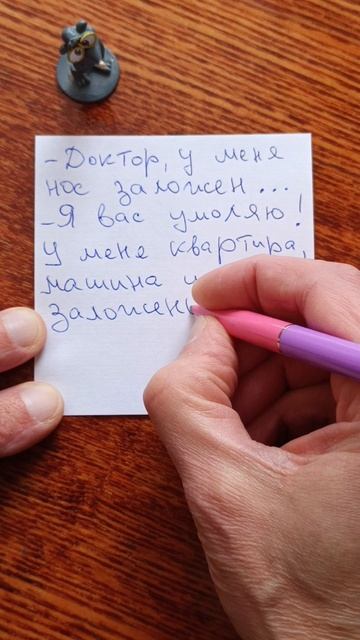 - Доктор, у меня
нос заложен...
- Я вас умоляю!
У меня квартира,
машина
заложен